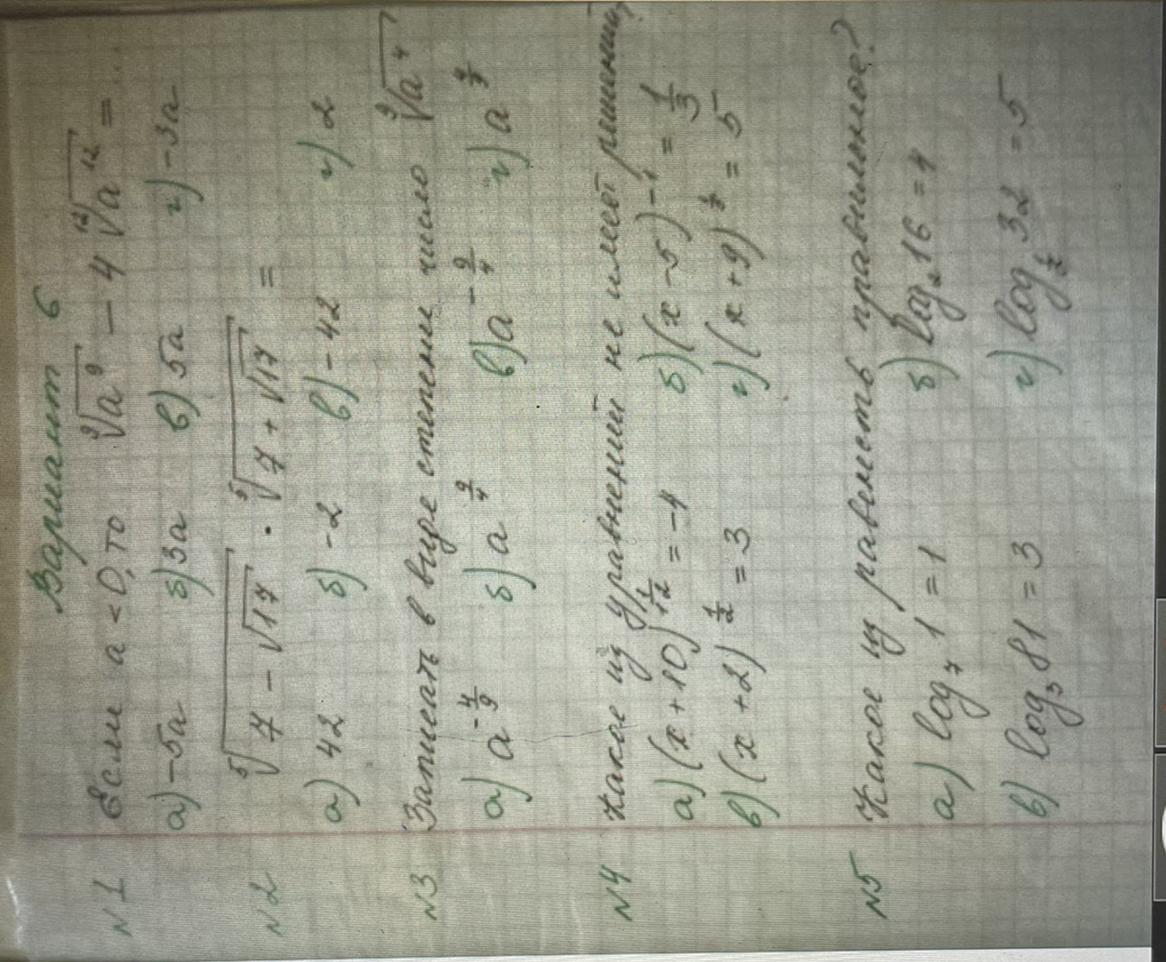 Вариант 6
№1 Если a < 0, то ⁹√a⁹ − 4 ¹²√a¹² = ...
а) −5a б) 3a в) 5a г) −3a
№2 ⁵√(7 − √17) · ⁵√(7 + √17) =
а) 42 б) −2 в) −42 г) 2
№3 Записать в виде степени число ⁹√a⁴
а) a^(−4/9) б) a^(9/4) в) a^(−9/4) г) a^(4/9)
№4 Какое из уравнений не имеет решений?
а) (x + 10)^(1/12) = −4 б) (x − 5)⁻¹ = 1/3
в) (x + 2)^(1/2) = 3 г) (x + 9)^(1/7) = 5
№5 Какое из равенств правильное?
а) log₇ 1 = 1 б) log₂ 16 = 4
в) log₃ 81 = 3 г) log_(1/2) 32 = 5